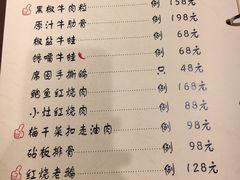 黑椒牛肉粒 例 158元
原汁牛肋骨 例 198元
椒盐牛蛙 例 68元
馋嘴牛蛙 例 68元
庵国手撕鸡 例 48元
鲍鱼红烧肉 例 88元
小灶红烧肉 例 68元
梅干菜扣走油肉 例 98元
砧板排骨 例 98元
红烧老鹅 例 128元